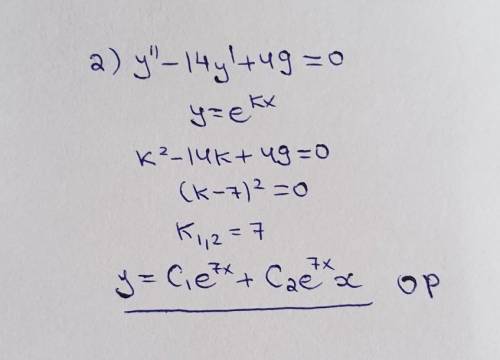 2) y'' - 14y' + 49 = 0
y = e^{kx}
k² - 14k + 49 = 0
(k - 7)² = 0
k_{1,2} = 7
y = C₁e^{7x} + C₂e^{7x}x ор